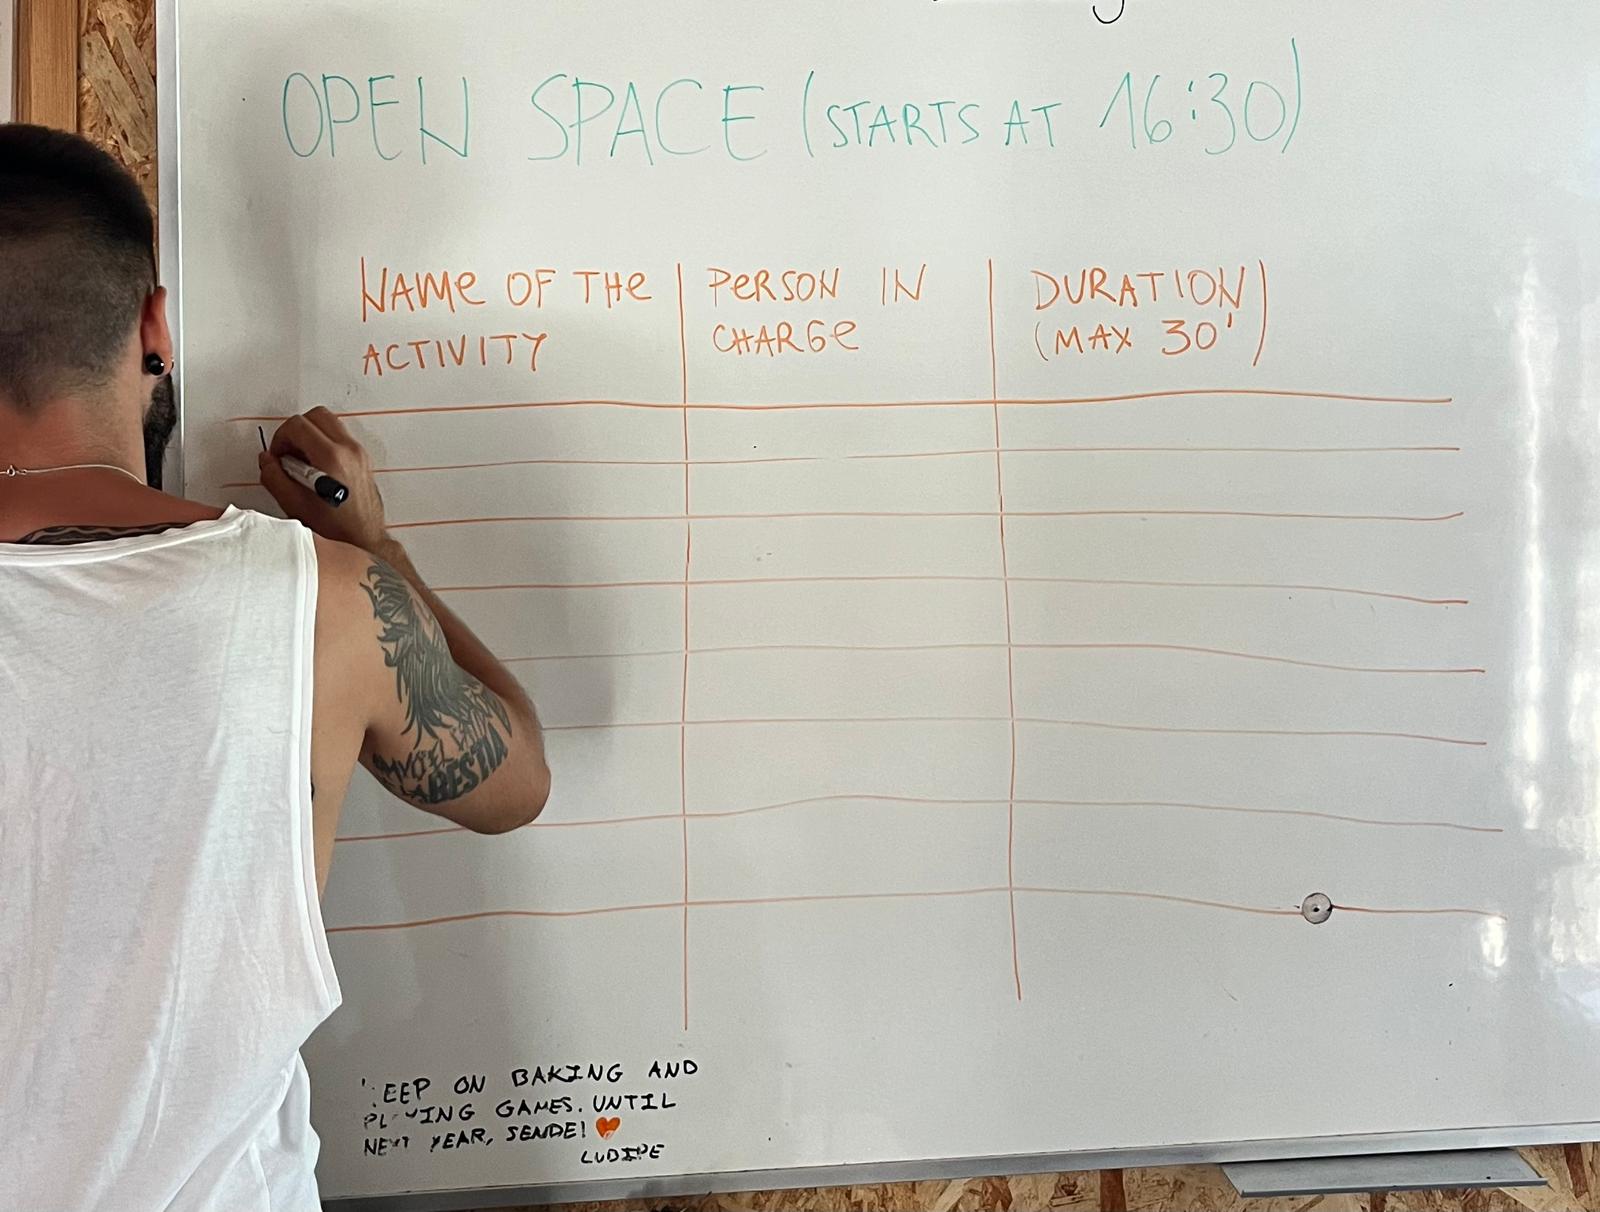 OPEN SPACE (STARTS AT 16:30)
NAME OF THE
ACTIVITY
PERSON IN
CHARGE
DURATION
(MAX 30')
BESTIA
EEP ON BAKING AND
PLAYING GAMES. UNTIL
NEXT YEAR, SENDE! ❤
LUDIPE